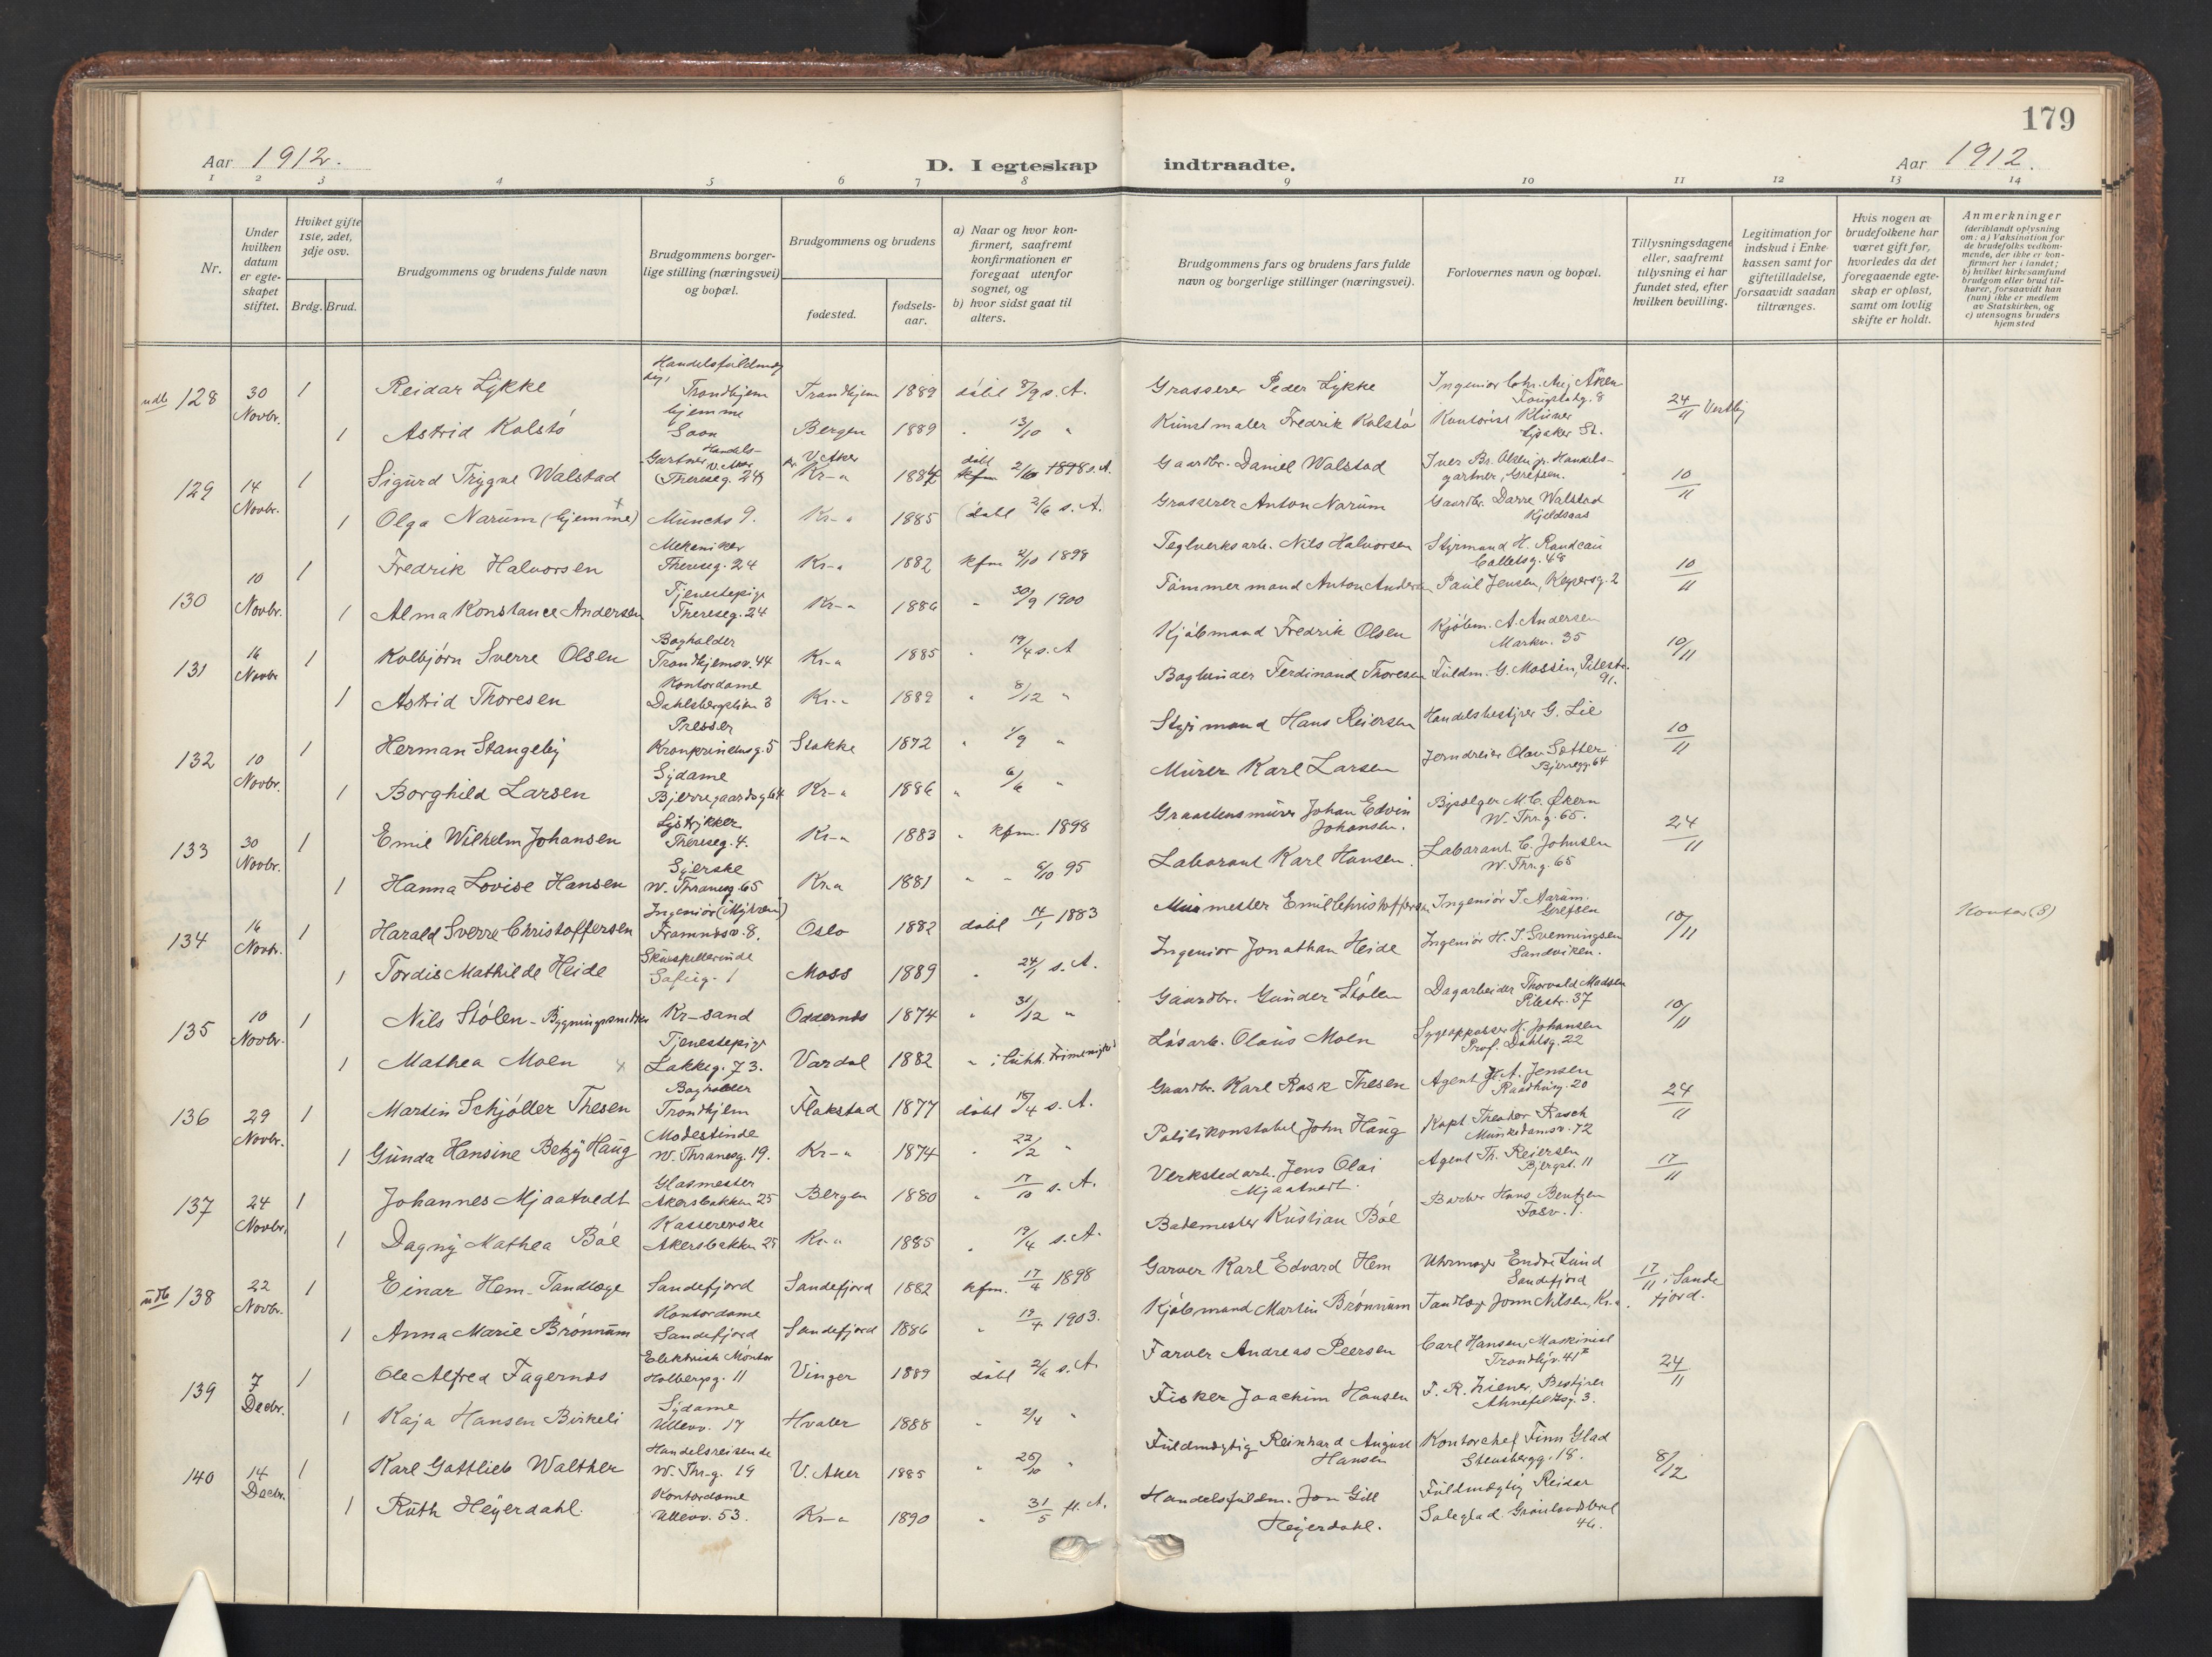 179
Aar 1912.
D. I egteskap indtraadte.
Aar 1912.
1 2 3 4 5 6 7 8 9 10 11 12 13 14
Nr.
Under hvilken datum er egteskapet stiftet.
Hviket gifte 1ste, 2det, 3dje osv.
Brdg. Brud.
Brudgommens og brudens fulde navn
Brudgommens borgerlige stilling (næringsvei) og bopæl.
Brudgommens og brudens
fødested.
fødselsaar.
a) Naar og hvor konfirmert, saafremt konfirmationen er foregaat utenfor sognet, og
b) hvor sidst gaat til alters.
Brudgommens fars og brudens fars fulde navn og borgerlige stillinger (næringsvei).
Forlovernes navn og bopæl.
Tillysningsdagene eller, saafremt tillysning ei har fundet sted, efter hvilken bevilling.
Legitimation for indskud i Enkekassen samt for giftetilladelse, forsaavidt saadan tiltrænges.
Hvis nogen av brudefolkene har været gift før, hvorledes da det foregaaende egteskap er opløst, samt om lovlig skifte er holdt.
Anmerkninger
(deriblandt oplysning om: a) Vaksination for de brudefolks vedkommende, der ikke er konfirmert her i landet;
b) hvilket kirkesamfund brudgom eller brud tilhører, forsaavidt han (hun) ikke er medlem av Statskirken, og
c) utensogns bruders hjemsted
udb 128 30 Novbr. 1 Reidar Lykke Trondhjem Trondhjem 1889 døbt 8/9 s. A. Grosserer Peder Lykke 24/11 Vestby
1 Astrid Kolstø hjemme Soon Bergen 1889 " 13/10 " Kunstmaler Fredrik Kolstø Kontorist Lysaker St.
129 14 Novbr. 1 Sigurd Trygve Walstad Handels-Gartner V. Aker (Thereseg. 24) V. Aker Kr-a 1884 døbt kfm 1898 s. A. Gaardbr. Daniel Walstad Handelsgartner, Grefsen. 10/11
1 Olga Narum (hjemme) Munchs 9. Kr-a 1885 (døbt 2/6 s. A. Grosserer Anton Narum Gaardbr. Walstad Kjeldsaas
130 10 Novbr. 1 Fredrik Halvorsen Mekaniker Thereseg. 24 Kr-a 1882 kfm 2/10 1898 Teglverksarb. Nils Halvorsen Styrmand H. Colletsg. 48 10/11
1 Alma Konstance Anderssen Tjenestepige Thereseg. 24 Kr-a 1886 " 30/9 1900 Tømmermand Anton Andersen Paul Jensen, Keysersg. 2
131 16 Novbr 1 Kolbjørn Sverre Olsen Bogholder Trondhjemsv. 44 Kr-a 1885 " 19/4 s. A Kjøbmand Fredrik Olsen Kjøbm. A. Andersen Markv. 35 10/11
1 Astrid Thoresen Kontordame Dahlsbergstien 3 Kr-a 1889 " 8/12 " Bogbinder Ferdinand Thoresen Fuldm. G. Mossin, Pilestr. 91.
132 10 Novbr. 1 Herman Stangeby Presser Kronprindensg. 5 Stokke 1872 " 1/9 " Styrmand Hans Reiersen Handelsbestyrer G. Lie 10/11
1 Borghild Larsen Sydame Bjerregaardsg 64 Kr-a 1886 " 6/6 " Murer Karl Larsen Jerndreier Olav Sætter Bjerregg. 64
133 30 Novbr. 1 Emil Wilhelm Johansen Lystrykker Thereseg. 4. Kr-a 1883 " kfm. 1898 Graastensmurer Johan Edvin Johansen. Bysælger M. C. Økern W. Thr. g. 65. 24/11
1 Hanna Lovise Hansen Syerske W. Thranesg. 65 Kr-a 1881 " " 6/10 95 Laborant Karl Hansen. Laborant C. Johnsen W. Thr. g. 65
134 16 Novbr. 1 Harald Sverre Christoffersen Ingeniør Framnæsv. 8. Oslo 1882 døbt 14/1 1883 Murmester Emil Christoffersen Ingeniør T. Aarum. Grefsen 10/11
1 Tordis Mathilde Heide Skuespillerinde Sofieg. 1 Moss 1889 " 24/1 s. A. Ingeniør Jonathan Heide Ingeniør H. J. Svenningsen Sandviken.
135 10 Novbr. 1 Nils Stølen - Bygningssnedker Kr-sand Oddernes 1874 " 31/12 " Gaardbr. Gunder Stølen Dagarbeider Thorvald Madsen Pilestr. 37 10/11
1 Mathea Moen Tjenestepige Lakkeg. 73. Vardal 1882 Løsarb. Olaus Moen Sygepasser K. Johansen Prof. Dahlsg. 22
136 29 Novbr. 1 Martin Schjøller Thesen Bogholder Trondhjem Flakstad 1877 døbt 18/4 s. A. Gaardbr. Karl Rask Thesen Agent A. Jensen Raadhusg. 20 24/11
1 Gunda Hansine Betzy Haug Modestinde W. Thranesg. 19. Kr-a 1874 " 22/2 " Politikonstabel John Haug Kapt Theodor Rasch Munkedamsv. 72
137 24 Novbr. 1 Johannes Mjaatvedt Glasmester Akersbakken 25 Bergen 1880 " 17/10 s. A. Verkstedarb. Jens Olai Mjaatvedt. Agent Th. Reiersen Bjergst. 11 17/11
1 Dagny Mathea Bøe Kassererske Akersbakken 25 Kr-a 1885 " 19/4 s. A. Bademester Kristian Bøe Barber Hans Bentzen Fosv. 1.
udb 138 22 Novbr. 1 Einar Hem - Tandlæge Sandefjord Sandefjord 1882 kfm. 17/4 1898 Garver Karl Edvard Hem Uhrmager Endre Lund Sandefjord 17/11 i Sandefjord.
1 Anna Marie Brønnum Kontordame Sandefjord Sandefjord 1886 " 19/4 1903. Kjøbmand Martin Brønnum Tandlæge Nilsen, Kr-a.
139 7 Decbr. 1 Ole Alfred Fagernæs Elektrisk Montør Holbergsg. 11 Vinger 1889 døbt 2/6 s. A. Farver Andreas Peersen Carl Hansen, Maskinist Trondhjv. 41 24/11
1 Kaja Hansen Birkeli Sydame Ullevv. 17 Hvaler 1888 " 2/4 " Fisker Joachim Hansen F. R. Ziener, Bestyrer Ahnefeldtsg. 3.
140 14 Decbr. 1 Karl Gottlieb Walther Handelsreisende W. Thr-g. 19 V. Aker 1885 " 25/10 " Fuldmægtig Reinhard August Hansen Kontorchef Finn Glad Stensbergg. 18. 8/12
1 Ruth Heyerdahl. Kontordame Ullevv. 53. Kr-a 1890 " 31/5 s. A. Handelsfuldm. Jon Gill Heyerdahl. Fuldmægtig Reidar 46.